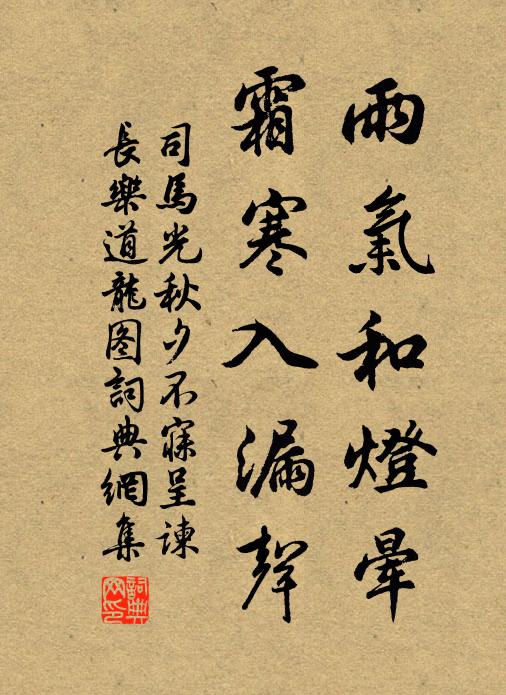 雨氣和燈暈
霜寒入漏聲
司馬光秋夕不寐呈諫
長樂道龍图詞典網集
詞典网印